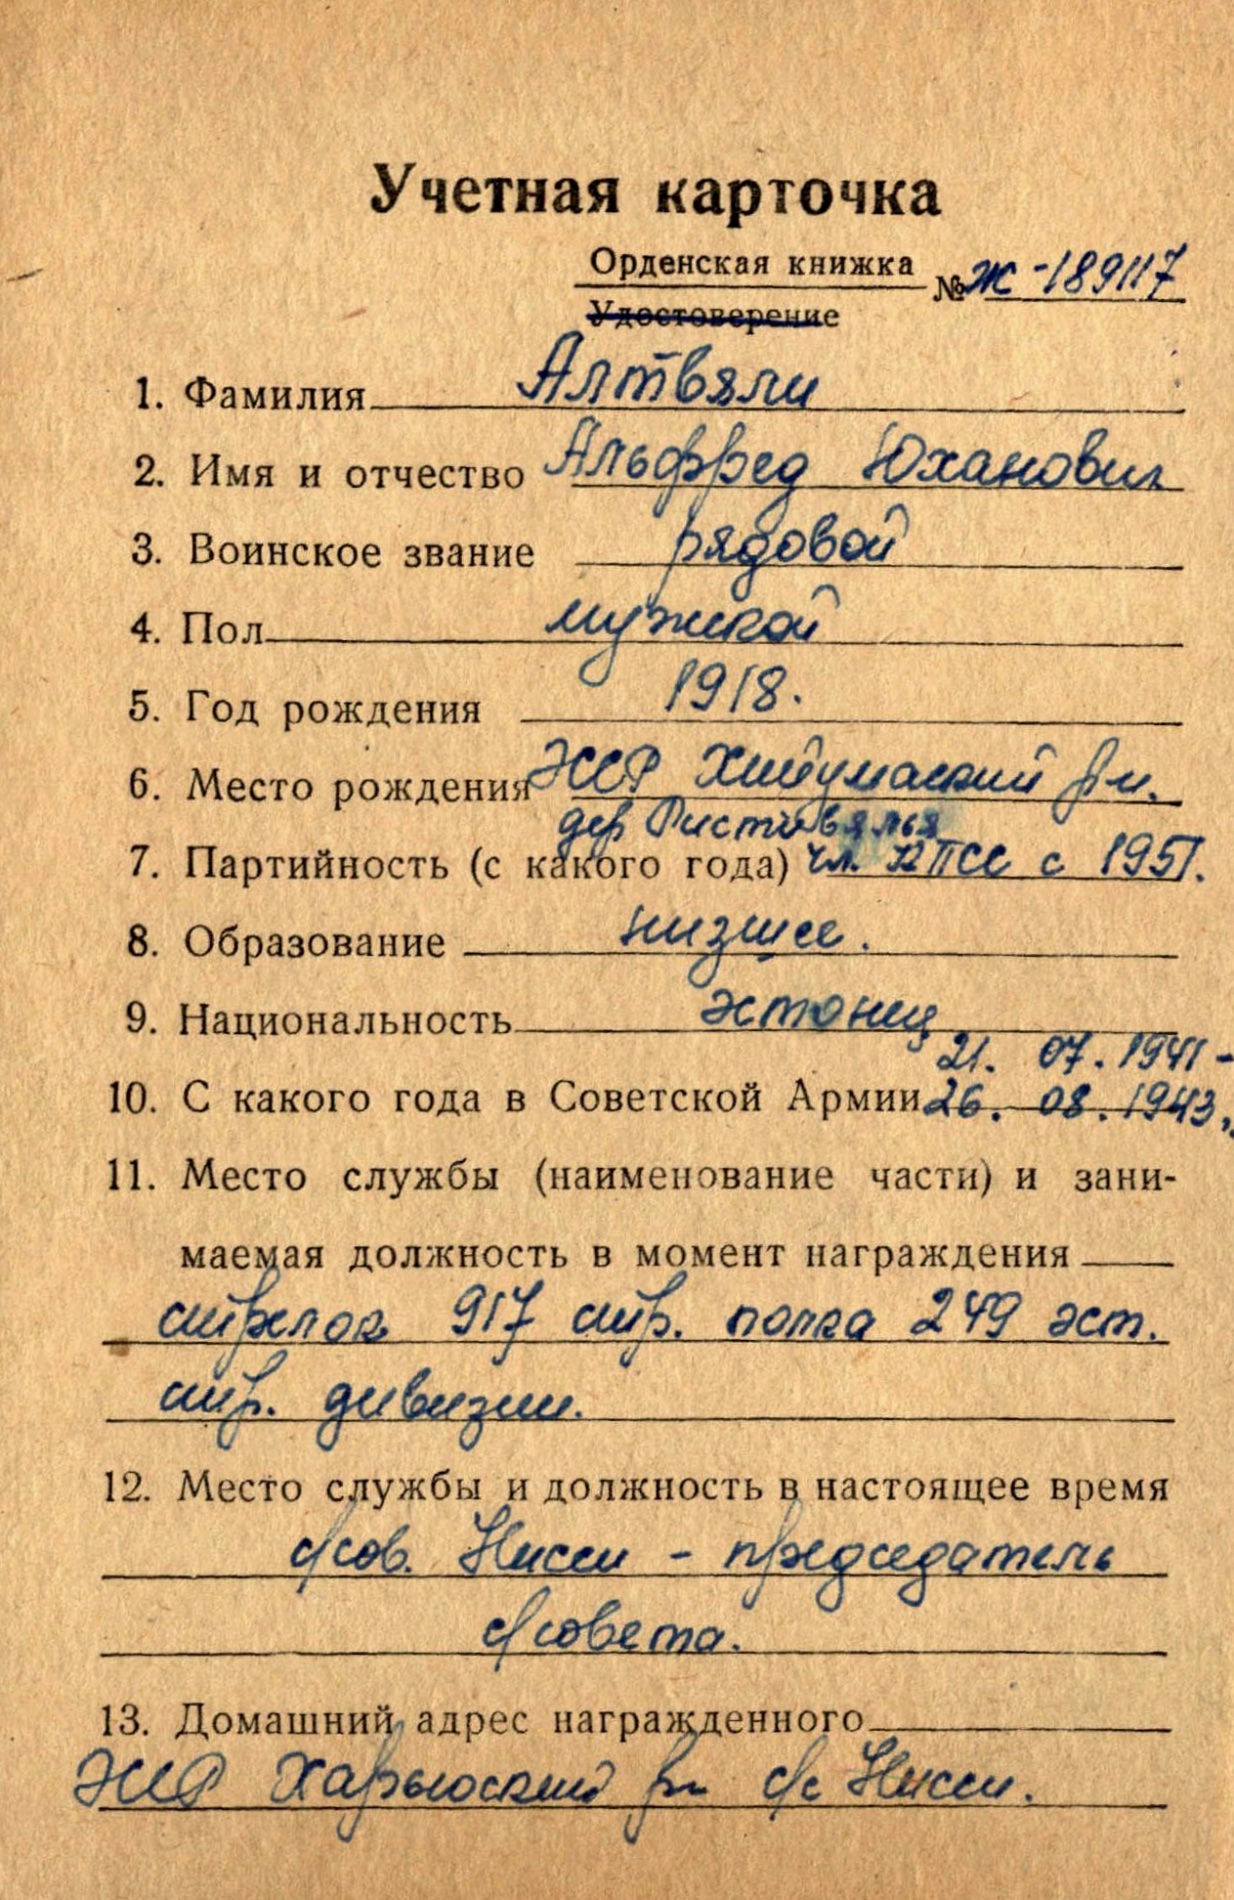 Учетная карточка
Орденская книжка
№ Ж-189117
Удостоверение
1. Фамилия Алтвяли
2. Имя и отчество Альфред Юханович
3. Воинское звание рядовой
4. Пол мужской
5. Год рождения 1918.
6. Место рождения ЭССР Хийумаский р-н.
дер Ристивялья
7. Партийность (с какого года) чл. КПСС с 1951.
8. Образование низшее.
9. Национальность эстонец
21. 07. 1941 -
10. С какого года в Советской Армии 26. 08. 1943.
11. Место службы (наименование части) и зани-
маемая должность в момент награждения
стрелок 917 стр. полка 249 эст.
стр. дивизии.
12. Место службы и должность в настоящее время
с/сов. Нисси - председатель
с/совета.
13. Домашний адрес награжденного
ЭССР Харьюский р-н с/с Нисси.